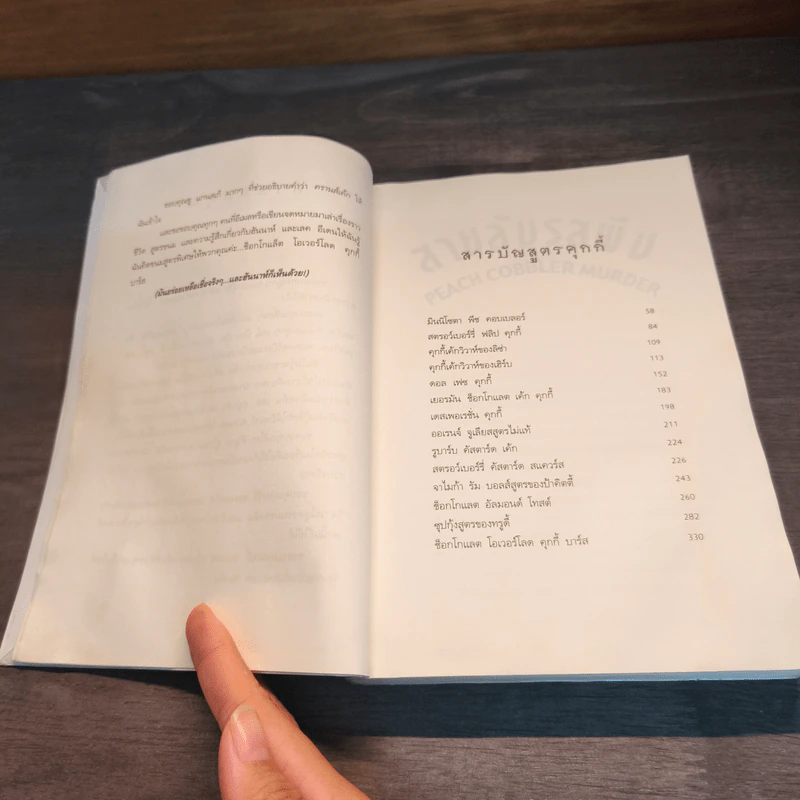 ขอบคุณซู มากๆ ที่ช่วยอธิบายคำว่า ให้
ฉันเข้าใจ
และขอขอบคุณทุกๆ คนที่อีเมลหรือเขียนจดหมายมาเล่าเรื่องราว
ชีวิต สูตรขนม และความรู้สึกเกี่ยวกับฮันนาห์ และเลค อีเดนให้ฉันรู้
ฉันคิดขนมสูตรพิเศษให้พวกคุณค่ะ...ช็อกโกแล็ต โอเวอร์โลด คุกกี้
บาร์ส
(มันอร่อยเหลือเชื่อจริงๆ...และฮันนาห์ก็เห็นด้วย!)
สารบัญสูตรคุกกี้
PEACH COBBLER MURDER
มินนิโซตา พีช คอบเบลอร์ 58
สตรอว์เบอร์รี่ ฟลิป คุกกี้ 84
คุกกี้เค้กวิวาห์ของลิซ่า 109
คุกกี้เค้กวิวาห์ของเฮิร์บ 113
ดอล เฟซ คุกกี้ 152
เยอรมัน ช็อกโกแลต เค้ก คุกกี้ 183
เดสเพอเรชั่น คุกกี้ 198
ออเรนจ์ จูเลียสสูตรไม่แท้ 211
รูบาร์บ คัสตาร์ด เค้ก 224
สตรอว์เบอร์รี่ คัสตาร์ด สแควร์ส 226
จาไมก้า รัม บอลส์สูตรของป้าคิตตี้ 243
ช็อกโกแลต อัลมอนด์ โทสต์ 260
ซุปกุ้งสูตรของทรูดี้ 282
ช็อกโกแลต โอเวอร์โลด คุกกี้ บาร์ส 330